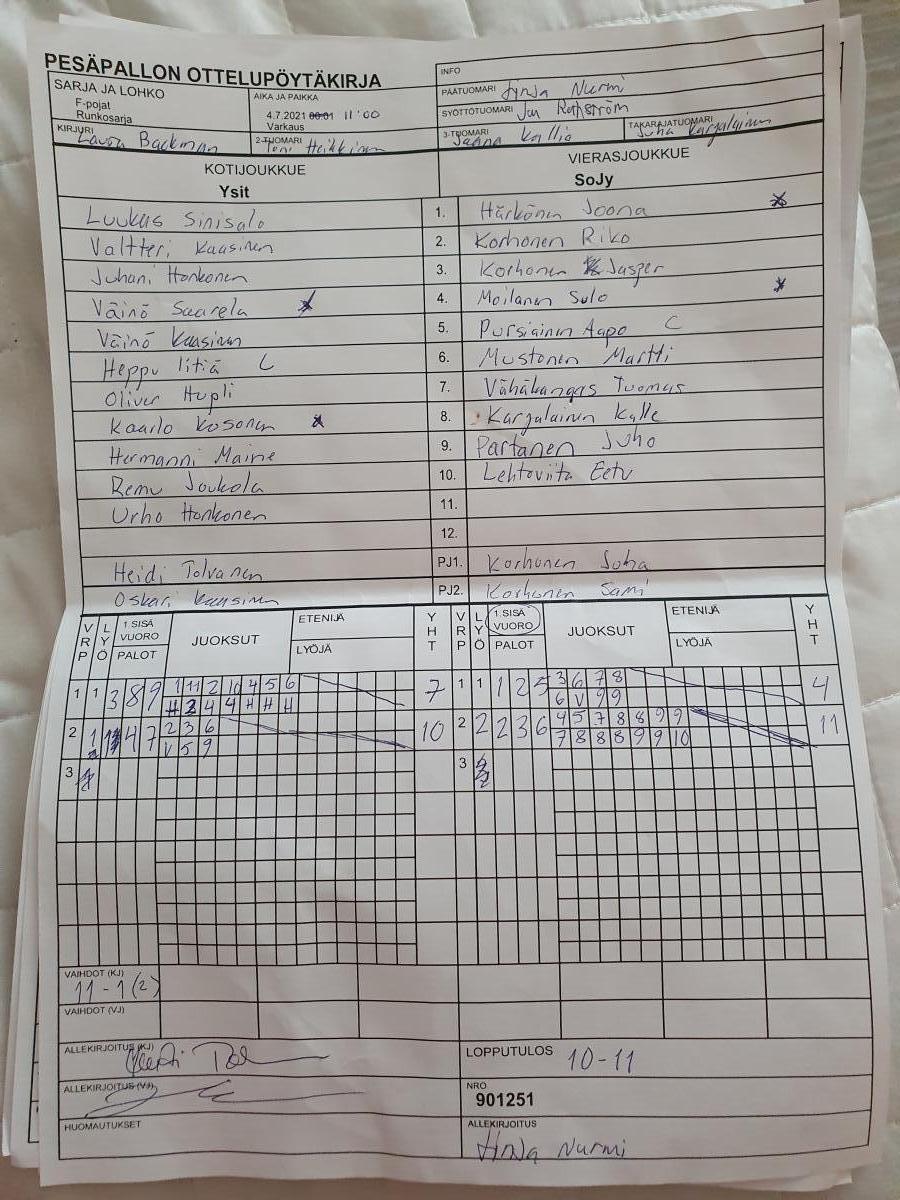 PESÄPALLON OTTELUPÖYTÄKIRJA
INFO
SARJA JA LOHKO
F-pojat
Runkosarja
AIKA JA PAIKKA
4.7.2021 00:01 11:00
Varkaus
PÄÄTUOMARI Nurmi
SYÖTTÖTUOMARI
KIRJURI Laura Backman
2-TUOMARI Toni Heikkinen
3-TUOMARI Janna Kallio
TAKARAJATUOMARI Juha Karjalainen
KOTIJOUKKUE
Ysit
VIERASJOUKKUE
SoJy
Luukas Sinisalo 1. Härkönen Joona x
Valtteri Kaasinen 2. Korhonen Riko
Juhani Honkonen 3. Korhonen Jasper
Väinö Saarela x 4. Moilanen Sulo x
Väinö Kaasinen 5. Pursiainen Aapo C
Heppu Iitiä C 6. Mustonen Martti
Oliver Hupli 7. Vähäkangas Tuomas
Kaarlo Kosonen x 8. Karjalainen Kalle
Hermanni Maine 9. Partanen Juho
Remu Joukola 10. Lehtoviita Eetu
Urho Honkonen 11.
12.
Heidi Tolvanen PJ1. Korhonen Juha
Oskari Kaasinen PJ2. Korhonen Sami
VRP LYÖ 1.SISÄ VUORO PALOT JUOKSUT ETENIJÄ LYÖJÄ YHT VRP LYÖ 1.SISÄ VUORO PALOT JUOKSUT ETENIJÄ LYÖJÄ YHT
1 1 3 8 9 1 11 2 10 4 5 6 7 1 1 1 2 5 3 6 7 8 4
4 4 H H 6 V 9 9
2 1 4 7 2 3 6 10 2 2 2 3 6 4 5 7 8 8 9 9 11
V 5 9 7 8 8 8 9 9 10
3 3
VAIHDOT (KJ)
11-1(2)
VAIHDOT (VJ)
ALLEKIRJOITUS (KJ)
LOPPUTULOS 10-11
ALLEKIRJOITUS (VJ)
NRO
901251
HUOMAUTUKSET
ALLEKIRJOITUS
Nurmi